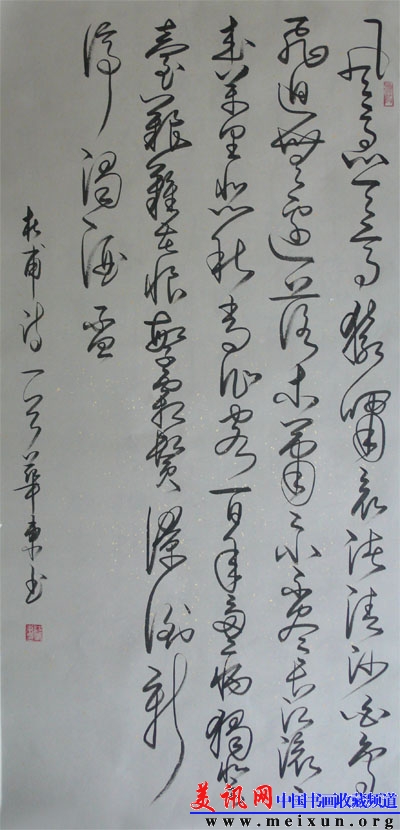 風急天高猿嘯哀渚清沙白鳥
飛迴無邊落木蕭〻下不盡長江滾〻
來萬里悲秋常作客百年多病獨登
臺艱難苦恨繁霜鬢潦倒新
停濁酒盃
杜甫诗一首華東书
美讯网 中国书画收藏频道
www.meixun.org